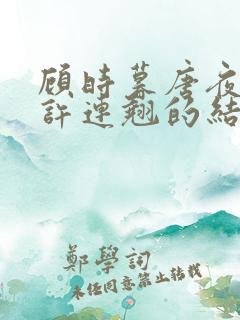 顾時暮唐夜
許連翘的結
鄭學詞
未任同意禁止轉載